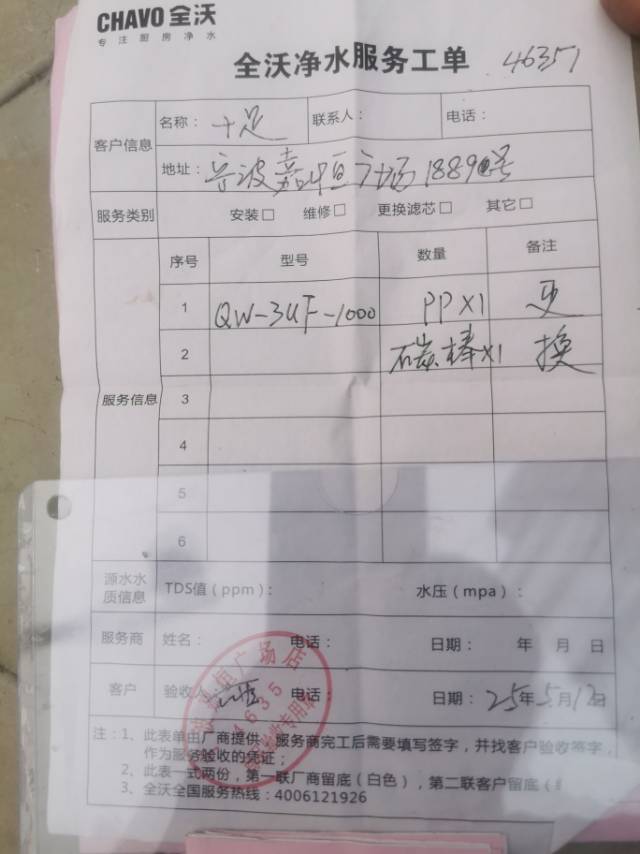 CHAVO 全沃
专注厨房净水
全沃净水服务工单 46351
客户信息 名称： 十足 联系人： 电话：
地址： 宁波嘉恒广场1889号
服务类别 安装□ 维修□ 更换滤芯□ 其它□
服务信息
序号 型号 数量 备注
1 QW-3UF-1000 PPX1 更
2 碳棒X1 换
3
4
5
6
源水水质信息 TDS值（ppm）： 水压（mpa）：
服务商 姓名： 电话： 日期： 年 月 日
客户 验收人 电话： 日期： 25年5月12日
恒广场店
4635
专用章
注：1、此表单由厂商提供，服务商完工后需要填写签字，并找客户验收签字，
作为服务验收的凭证；
2、此表一式两份，第一联厂商留底（白色），第二联客户留底（
3、全沃全国服务热线：4006121926